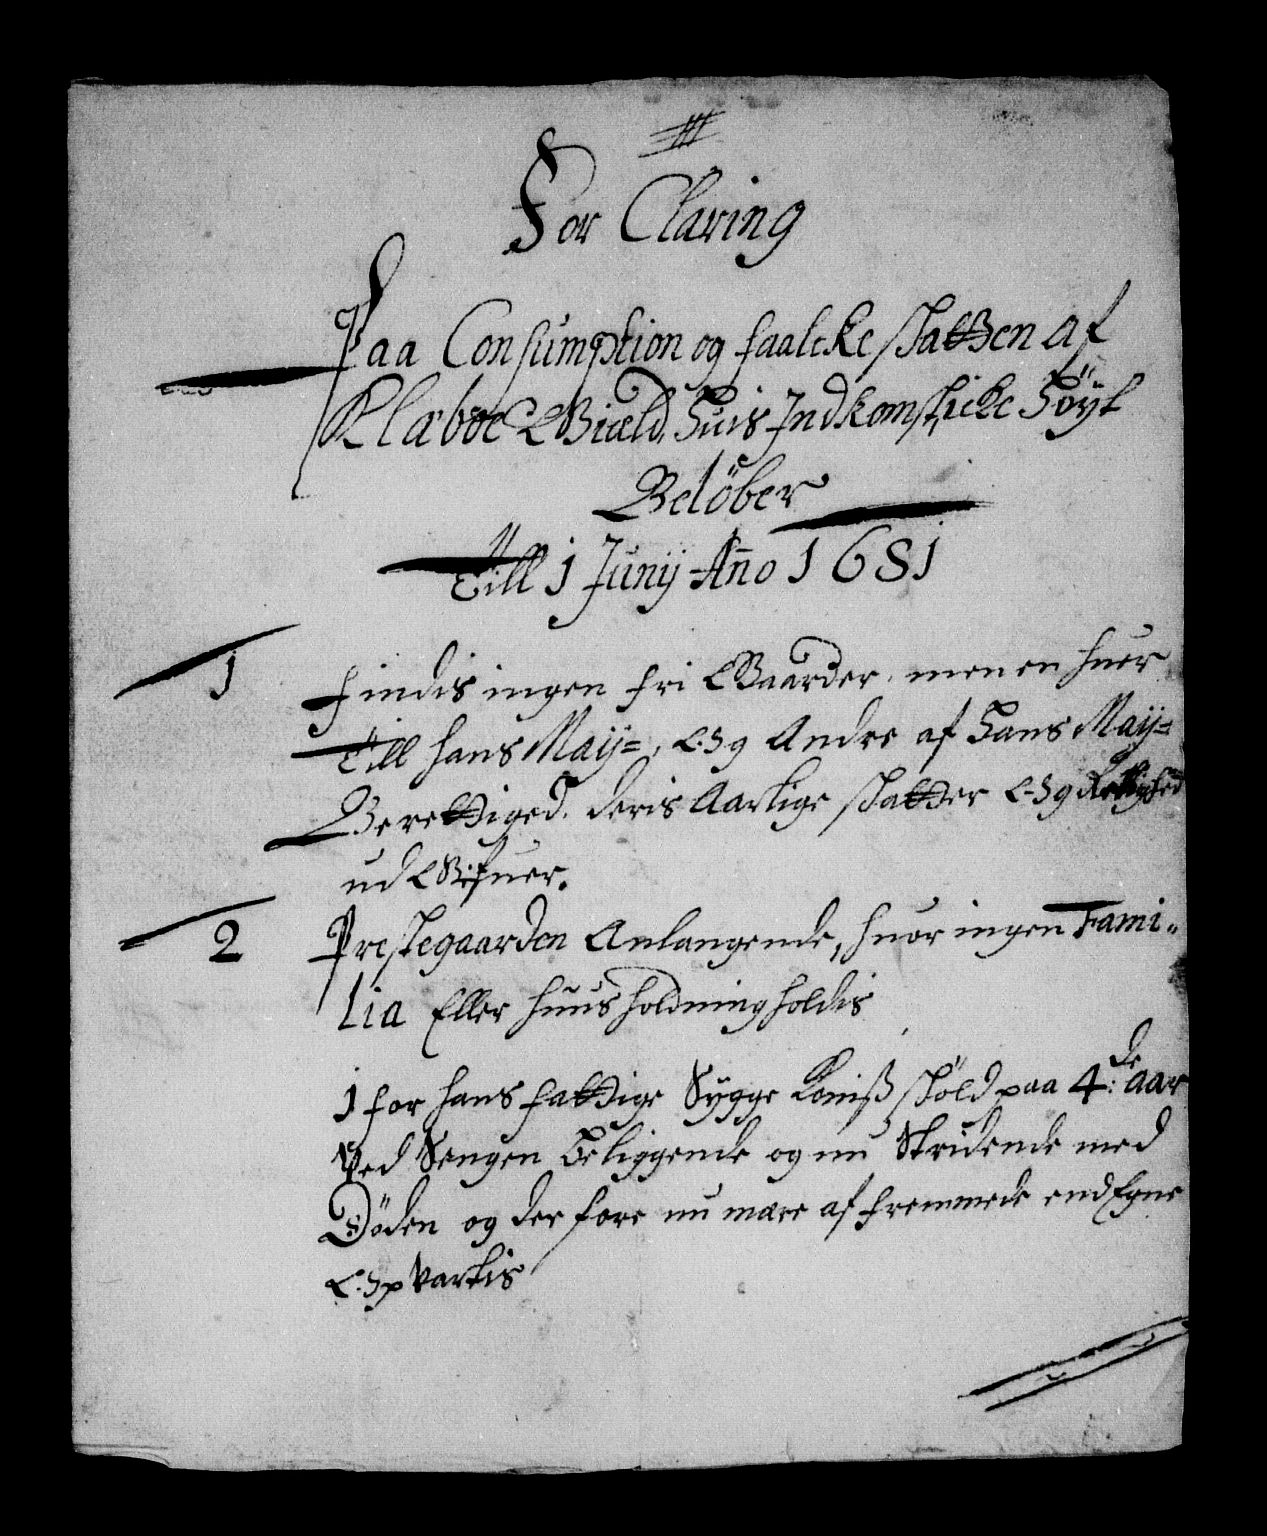 For Claring
Paa Consumption og faalcke skatten af
Klæboe Giæld, Huis Indkomst, icke Höyt
Belöber
Till 1 Junij Año 1681
1 Findis ingen fri Gaarder, men en huer
Till hans Maij=, Og Andre af Hans Maij=
Berettiged, deris Aarlige skatter Og Rettighed
ud Gifuer.
2 Prestegaarden Anlangende, huor ingen Fami„
lia Eller huus holdning holdis
1 for hans fattige Sÿgge skÿld paa 4de: Aar
Ved Sengen Beliggende og nu Stridende med
Döden og der fore nu mære af fremmede end Egne
Op Vartis